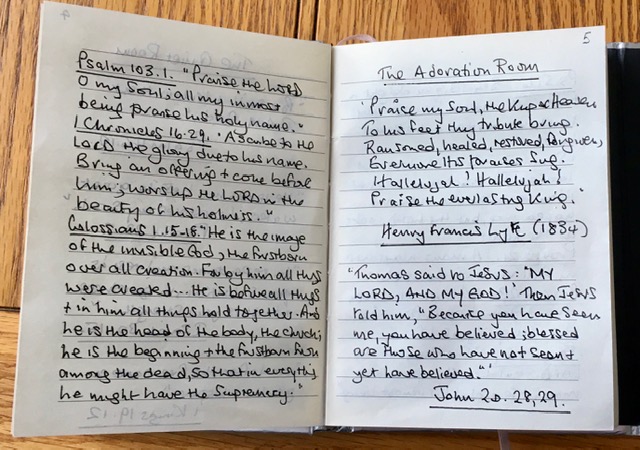 4
Psalm 103.1. "Praise the LORD
O my Soul; all my inmost
being praise his holy name."
1 Chronicles 16:29. "Ascribe to the
LORD the glory due to his name.
Bring an offering + come before
him; worship the LORD in the
beauty of his holiness."
Colossians 1.15-18. "He is the image
of the invisible God, the firstborn
over all creation. For by him all things
were created... He is before all things
+ in him all things hold together. And
he is the head of the body, the church;
he is the beginning + the firstborn from
among the dead, so that in everything
he might have the Supremacy."
1 Kings 19.12
5
The Adoration Room
"Praise my Soul, the King of Heaven
To his feet thy tribute bring.
Ransomed, healed, restored, forgiven,
Evermore His praises Sing.
Hallelujah! Hallelujah!
Praise the everlasting King."
Henry Francis Lyte (1834)
"Thomas said to JESUS: "MY
LORD, AND MY GOD!' Then JESUS
told him, "Because you have seen
me, you have believed; blessed
are those who have not seen +
yet have believed."'
John 20. 28, 29.